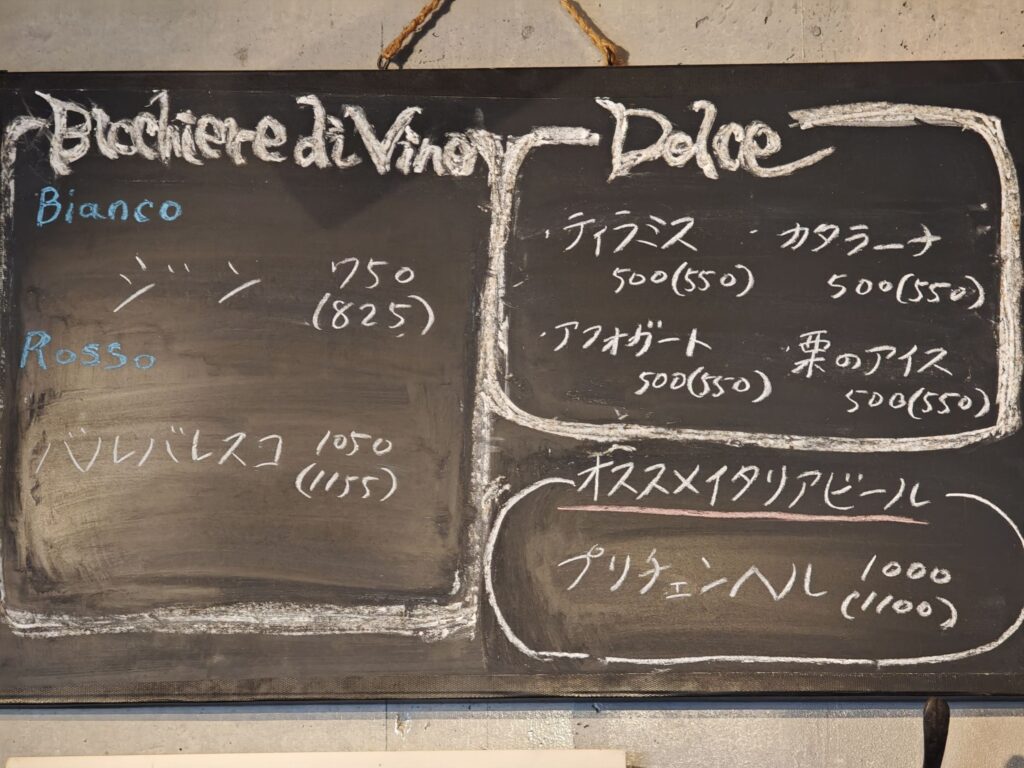 Bicchiere di Vino
Bianco
ジン 750
(825)
Rosso
バルバレスコ 1050
(1155)
Dolce
・ティラミス
500(550)
・カタラーナ
500(550)
・アフォガート
500(550)
・栗のアイス
500(550)
オススメイタリアビール
プリチェンヘル 1000
(1100)